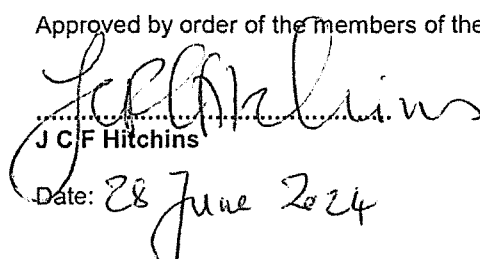 Approved by order of the members of the
J C F Hitchins
J C F Hitchins
Date: 28 June 2024